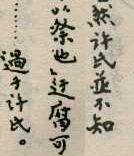 然許氏並不知
以祭也迂腐可
……過于許氏。